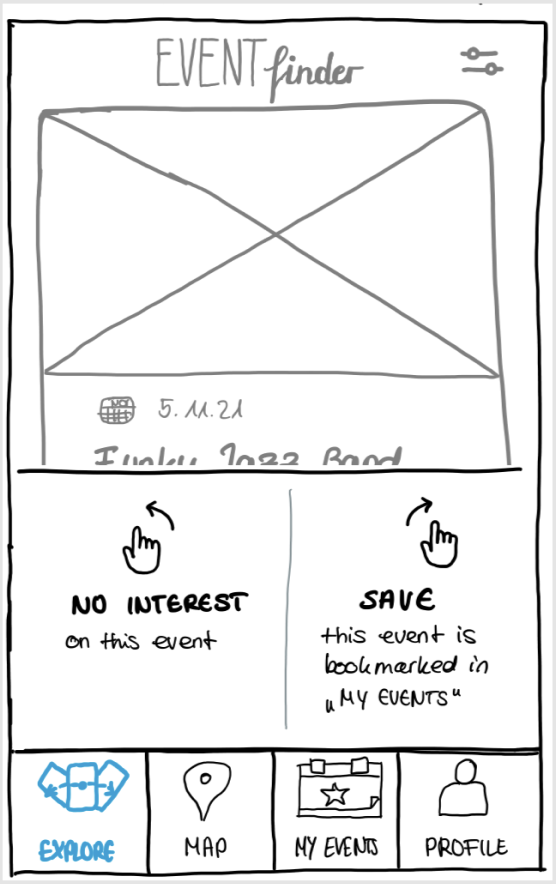 EVENTfinder
5.11.21
Funky Jazz Band
NO INTEREST
on this event
SAVE
this event is
bookmarked in
„MY EVENTS"
EXPLORE
MAP
MY EVENTS
PROFILE